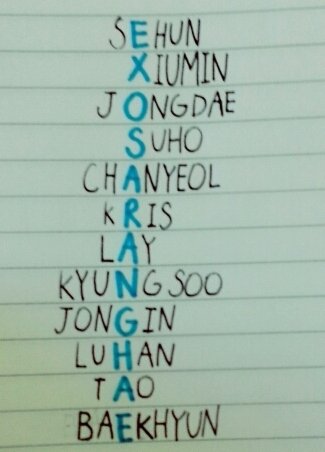 SEHUN
XIUMIN
JONGDAE
SUHO
CHANYEOL
KRIS
LAY
KYUNGSOO
JONGIN
LUHAN
TAO
BAEKHYUN